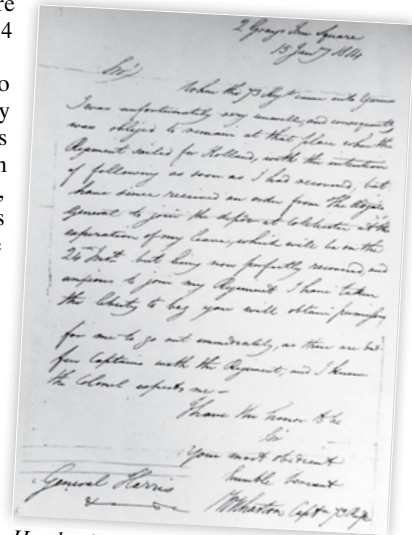 re
4
o
y
s
n
,
s
e
2 Grays Inn Square
15 Jany 1814
Sir
When the 73 Regt came into
I was unfortunately very unwell, and consequently
was obliged to remain at that place when the
Regiment sailed for Holland, with the intention
of following as soon as I had recovered, but
have since received an order from the
General to join the depot at Colchester at the
expiration of my leave, which will be on the
24 Inst. but being now perfectly recovered, and
anxious to join my Regiment I have taken
the liberty to beg you will obtain permission
for me to go out immediately, as there are but
few Captains with the Regiment, and I know
the Colonel expects me –
I have the honor to be
Sir
Your most obedient
humble Servant
Wharton Captn 73 Regt
General Harris